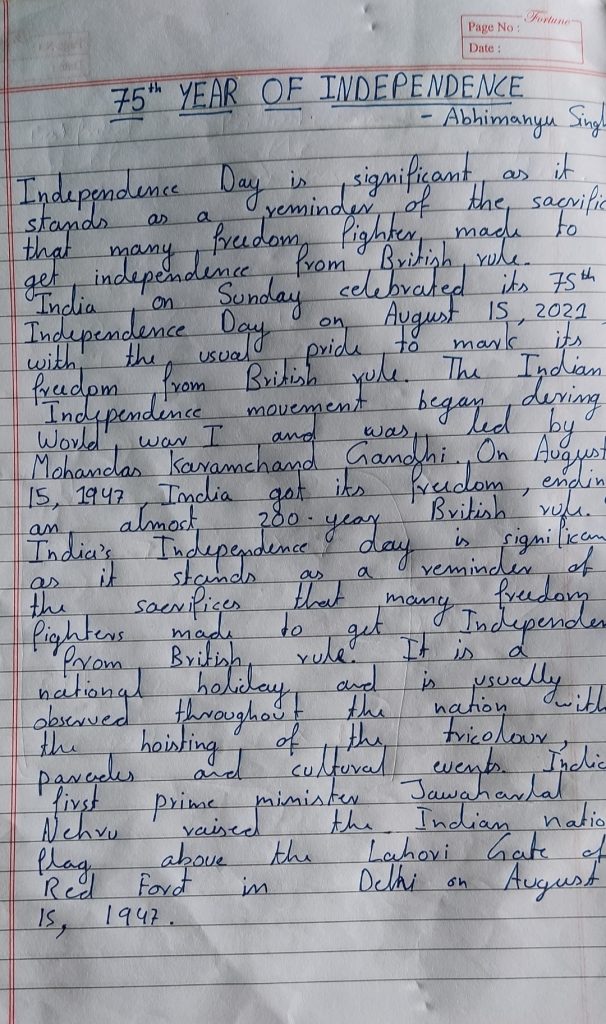 Fortune
Page No :
Date :
75th YEAR OF INDEPENDENCE
- Abhimanyu Singh
Independence Day is significant as it
stands as a reminder of the sacrific
that many freedom fighter made to
get independence from British rule.
India on Sunday celebrated its 75th
Independence Day on August 15, 2021
with the usual pride to mark its
freedom from British rule. The Indian
Independence movement began dering
World war I and was led by
Mohandas Karamchand Gandhi. On August
15, 1947, India got its freedom, endin
an almost 200-year British rule.
India's Independence day is significan
as it stands as a reminder of
the sacrifices that many freedom
fighters made to get Independen
from British rule. It is a
national holiday and is usually
observed throughout the nation with
the hoisting of the tricolour,
parades and cultural events. Indic
first prime minister Jawaharlal
Nehru raised the Indian natio
flag above the Lahori Gate of
Red Ford in Delhi on August
15, 1947.